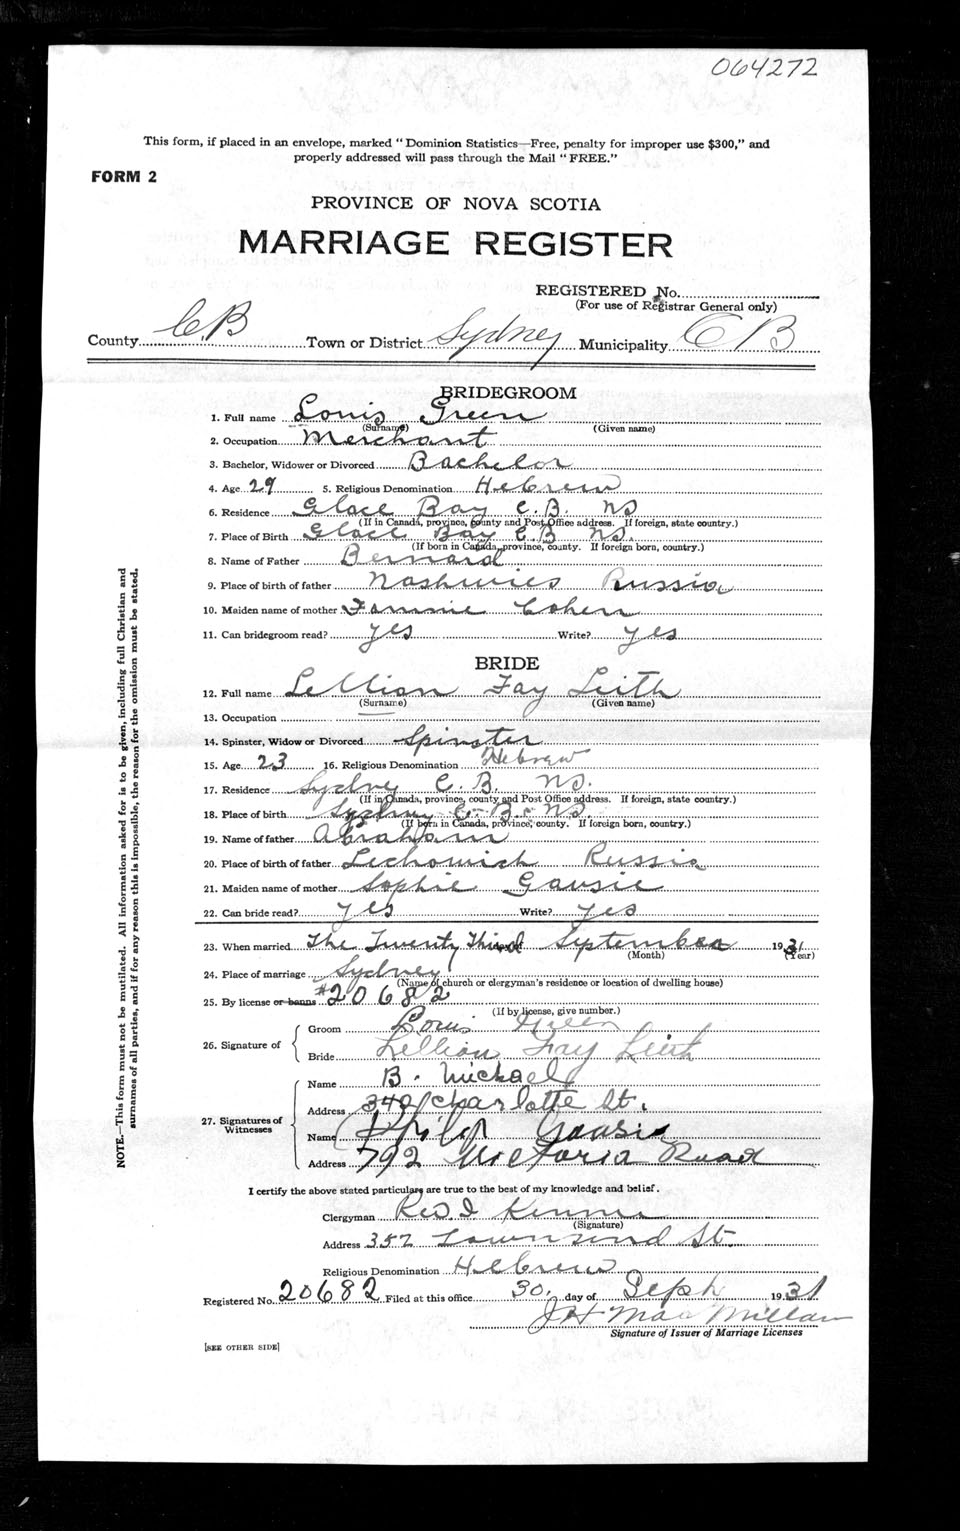 064272
This form, if placed in an envelope, marked "Dominion Statistics—Free, penalty for improper use $300," and
properly addressed will pass through the Mail "FREE."
FORM 2
PROVINCE OF NOVA SCOTIA
MARRIAGE REGISTER
REGISTERED No.
(For use of Registrar General only)
County C.B Town or District Sydney Municipality C B
BRIDEGROOM
1. Full name Louis Green
(Surname) (Given name)
2. Occupation Merchant
3. Bachelor, Widower or Divorced Bachelor
4. Age 29 5. Religious Denomination Hebrew
6. Residence Glace Bay C.B. NS
(If in Canada, province, county and Post Office address. If foreign, state country.)
7. Place of Birth Glace Bay C B NS.
(If born in Canada, province, county. If foreign born, country.)
8. Name of Father Bernard
9. Place of birth of father Russia
10. Maiden name of mother Fannie Cohen
11. Can bridegroom read? yes Write? yes
BRIDE
12. Full name Lellian Fay Leith
(Surname) (Given name)
13. Occupation
14. Spinster, Widow or Divorced Spinster
15. Age 23 16. Religious Denomination Hebrew
17. Residence Sydney C. B. NS.
(If in Canada, province, county and Post Office address. If foreign, state country.)
18. Place of birth Sydney C. B. NS.
(If born in Canada, province, county. If foreign born, country.)
19. Name of father Abraham
20. Place of birth of father Lechowich Russia
21. Maiden name of mother Sophie Gausie
22. Can bride read? yes Write? yes
23. When married The Twenty Third September 1931
(Month) (Year)
24. Place of marriage Sydney
(Name of church or clergyman's residence or location of dwelling house)
25. By license or banns #20682
(If by license, give number.)
26. Signature of
Groom Louis Green
Bride Lellian Fay Leith
27. Signatures of Witnesses
Name B. Michael
Address 340 Charlotte St.
Name Philip Gausie
Address 792 Victoria Road
I certify the above stated particulars are true to the best of my knowledge and belief.
Clergyman Rev. I
(Signature)
Address 352 Townsend St.
Religious Denomination Hebrew
Registered No. 20682 Filed at this office 30. day of Sept 1931
J H MacMillan
Signature of Issuer of Marriage Licenses
[SEE OTHER SIDE]
NOTE.—This form must not be mutilated. All information asked for is to be given, including full Christian and
surnames of all parties, and if for any reason this is impossible, the reason for the omission must be stated.